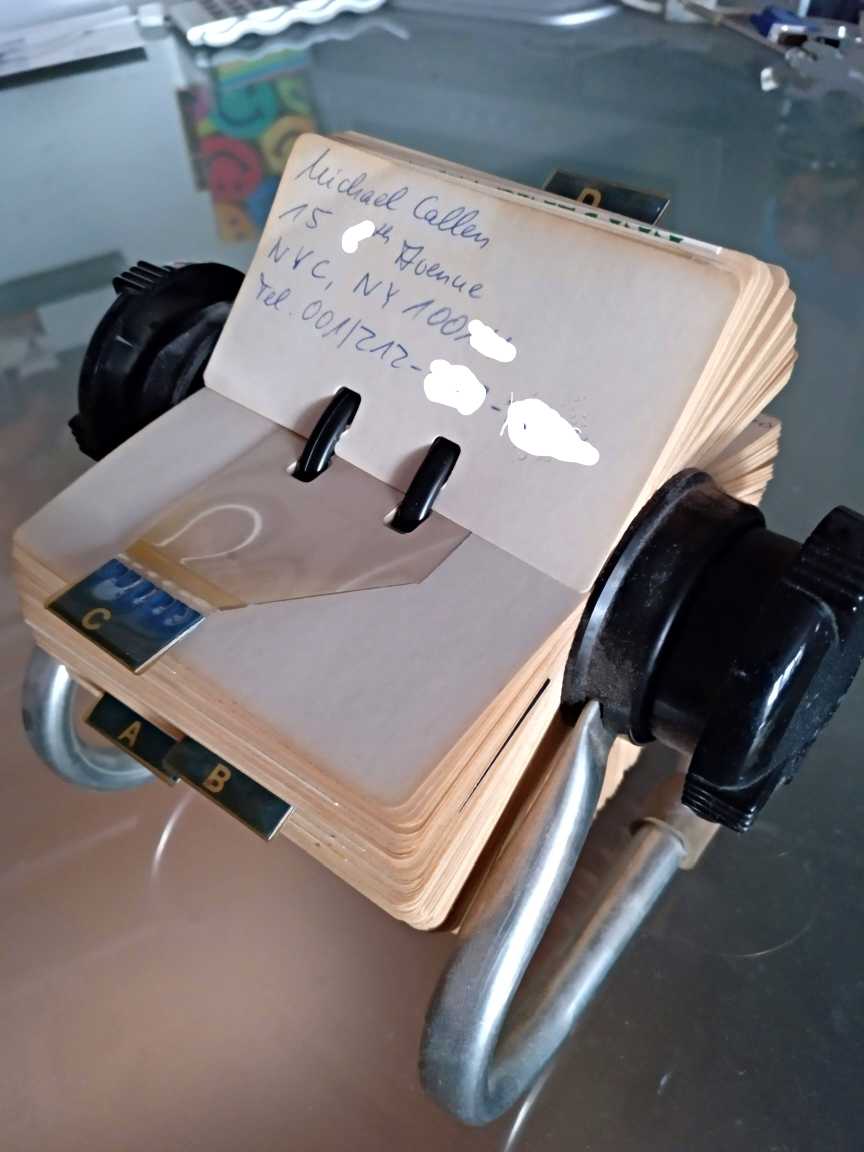 Michael Callen
15 th Avenue
NYC, NY 100
Tel. 001/212- -
C
A
B